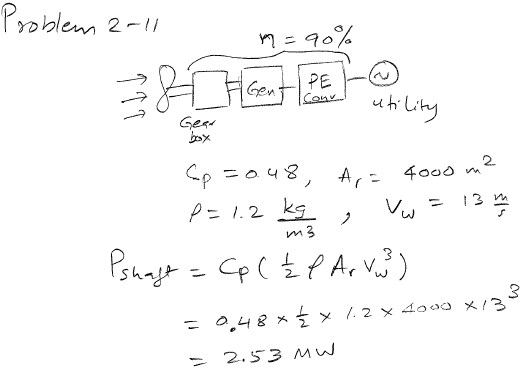 Problem 2-11
η = 90%
Gear box
Gen
PE Conv
utility
Cp = 0.48, Ar = 4000 m²
ρ = 1.2 kg/m3, Vw = 13 m/s
Pshaft = Cp ( ½ ρ Ar Vw³ )
= 0.48 × ½ × 1.2 × 4000 × 13³
= 2.53 MW